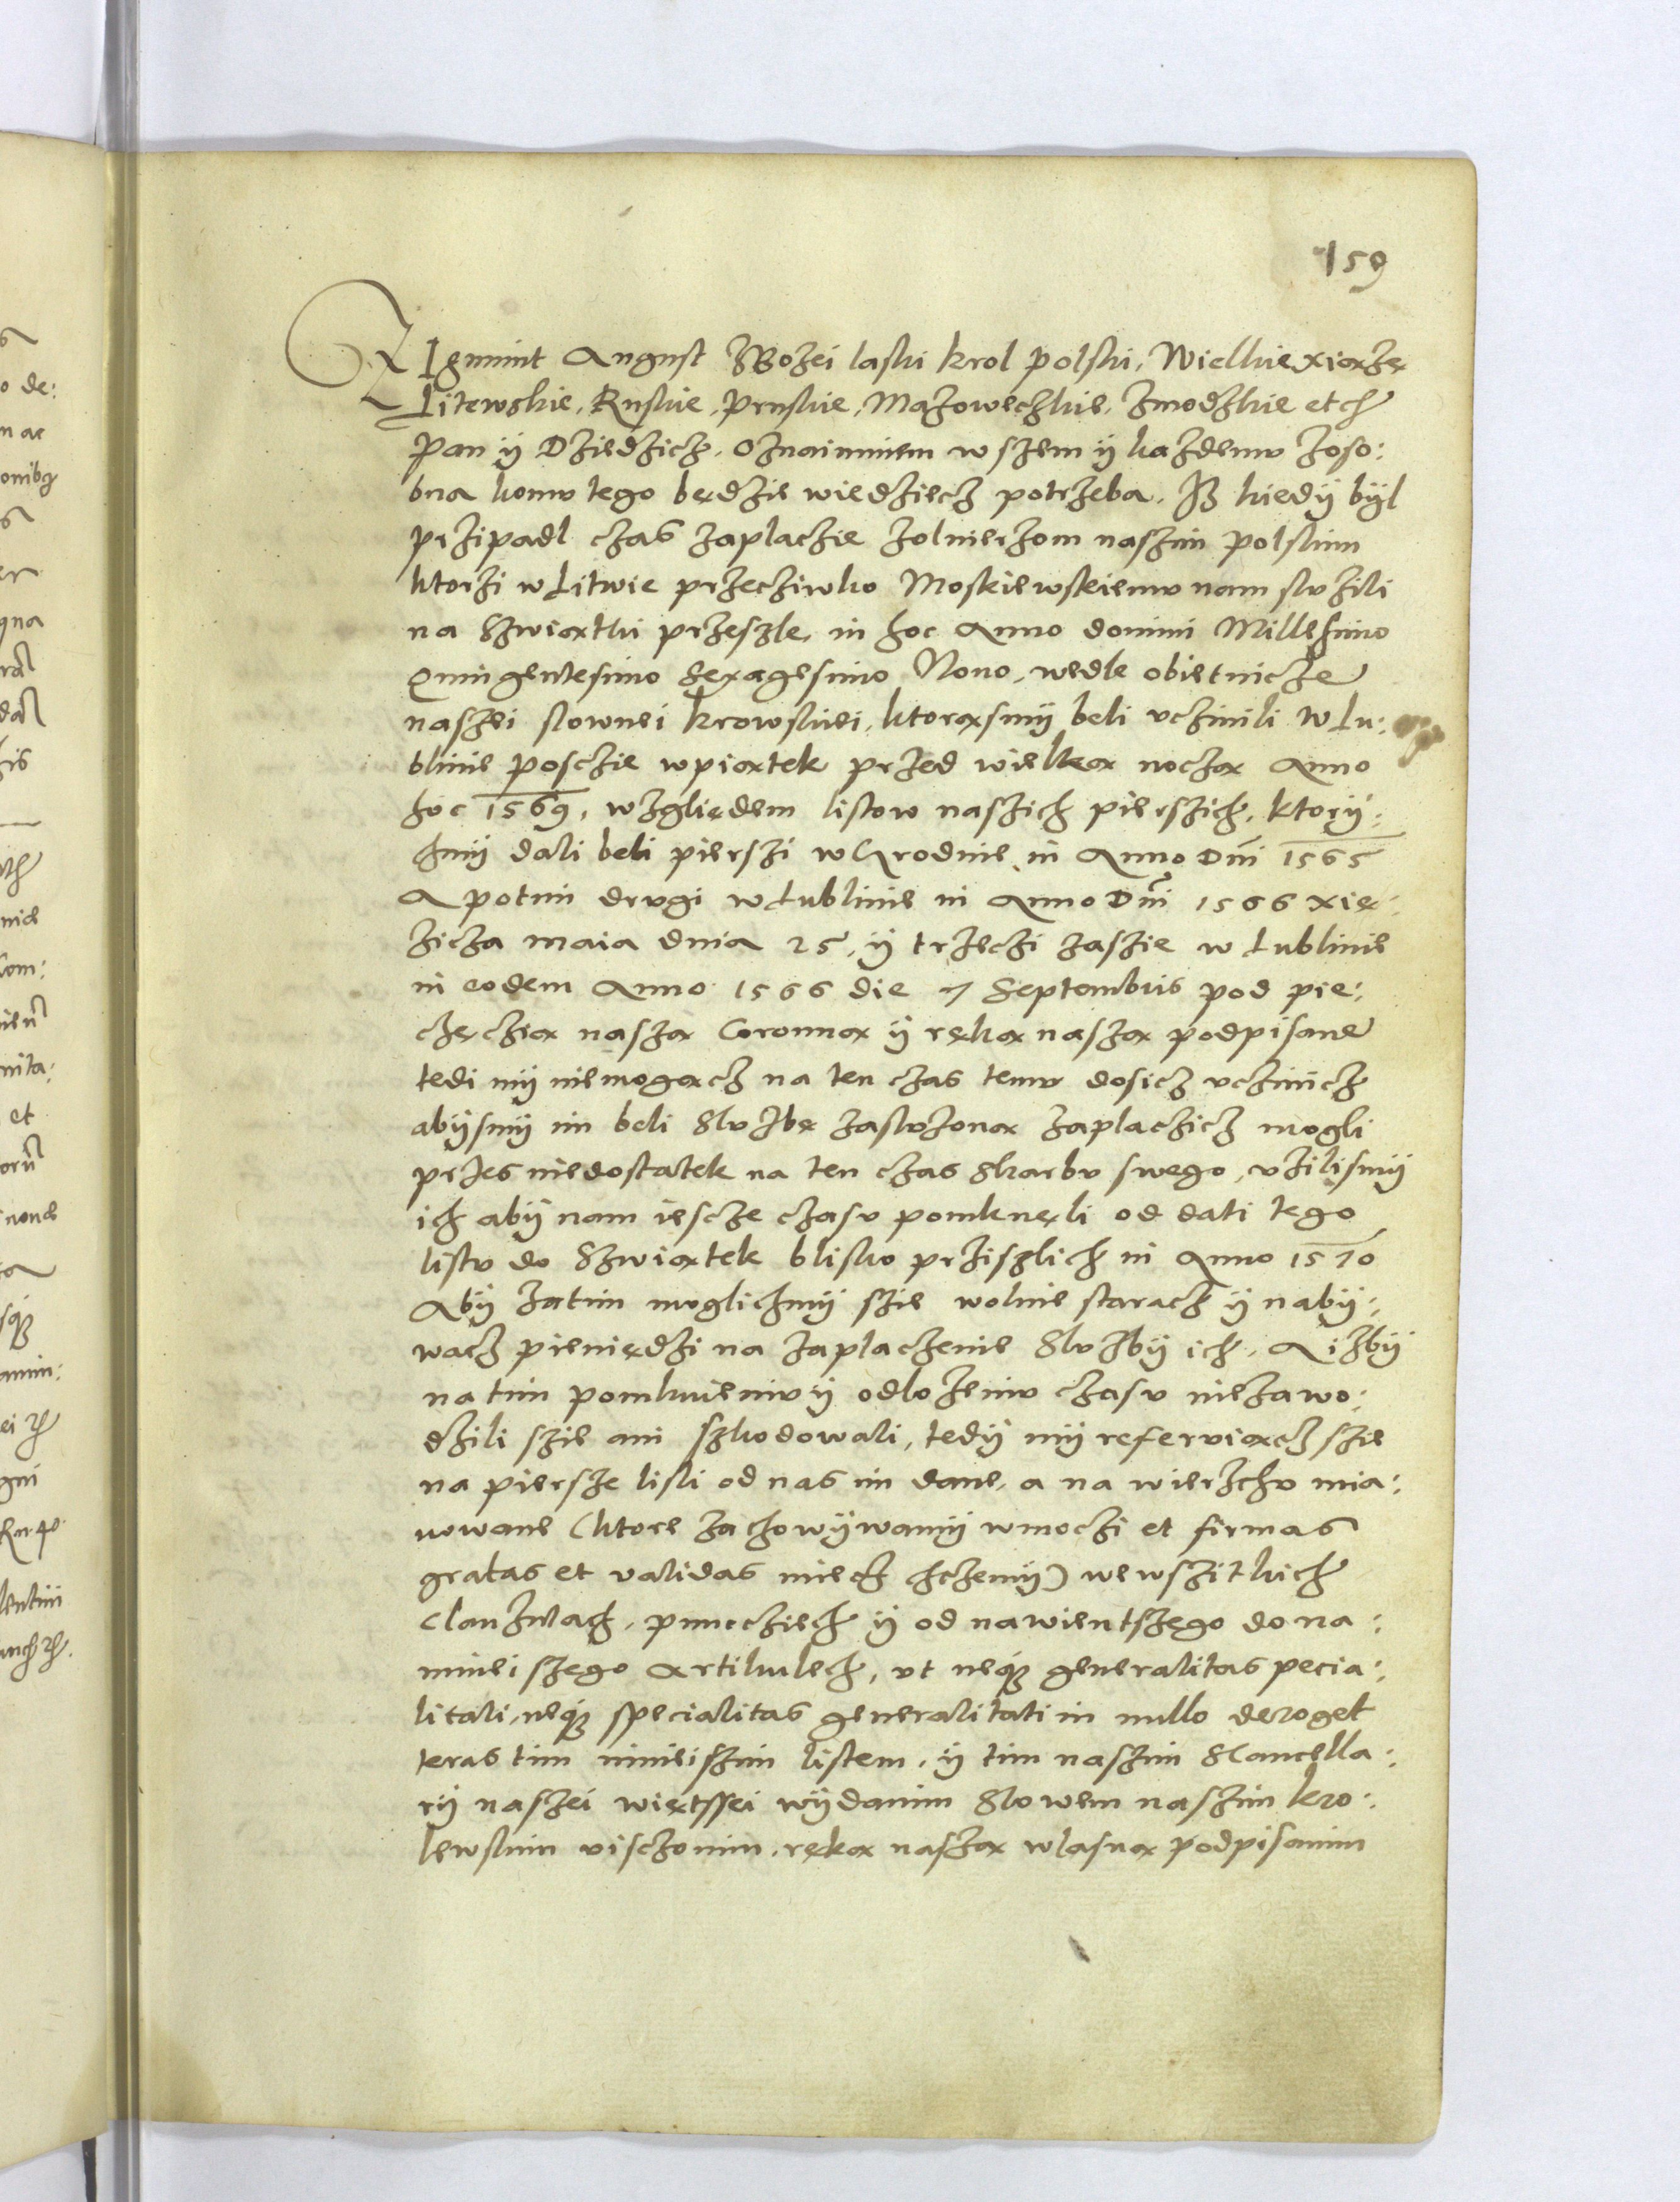 159
ZIgmunt August ZBożei laski krol polski, Wielkie xiąże
Litewskie, Ruskie, pruskie, Mazowechkie, Zmodzkie etc
pan ÿ Dziedzicz, oznaimuiem wszem ÿ kazdemv zoso:
bna komv tego będzie wiedziecz potrzeba. Iż kiedÿ bÿl
przipadl czas zaplaczie zolnierzom naszim polskim
ktorzi w Litwie przecziwko Moskiewskiemv nam slvżili
na Szwiąthki przeszle, in hoc Anno domini Millesimo
Quingentesimo Sexagesimo Nono, wedle obietnicze
naszei slownei krowskiei, ktorąsmÿ beli vczinili w Lu:
blinie posczie wpiątek przed wielką noczą Anno
hoc 1569, wzgliędem listow naszich pierszich, ktorÿ:
chmÿ dali beli pierszi w Grodnie in Anno Dni 1565
A potim drvgi w Lublinie in Anno Dni 1566 xię:
zicza maia dnia 25, ÿ trzeczi zaszie w Lublinie
in eodem Anno 1566 die 7 Septembris pod pie:
częczią naszą Coronną ÿ ręką naszą podpisane
tedi mÿ niemogącz na ten czas temv dosicz vczinicz
abÿsmÿ im beli Slvzbę zaslvzoną zaplaczicz mogli
przes niedostatek na ten czas Skarbv swego, vzilismÿ
ich abÿ nam iescze czasv pomknęli od dati tego
listv do Szwiątek blisko prziszlich in Anno 1570
Abÿ zatim moglichmÿ szie wolnie staracz ÿ nabÿ:
wacz pieniędzi na zaplaczenie Slvzbÿ ich, A iżbÿ
na tim pomknieniv ÿ odlożeniv czasv niezawo:
dzili szie ani szkodowali, tedÿ mÿ referviącz szie
na piersze listi od nas im dane, a na wierzchv mia:
nowane (ktore zachowÿwamÿ wmoczi et firmas
gratas et validas miecz chczemÿ) wewszitkich
Clauzulach, punccziech ÿ od nawientszego do na:
mnieiszego artikulech, vt neque generalitas specia:
litati, neque specialitas generalitati in nullo deroget
teras tim ninieiszim listem, ÿ tim naszim Scancella:
rÿ naszei więtssei wÿdanim Slowem naszim kro:
lewskim visczonim, ręką naszą wlasną podpisanim